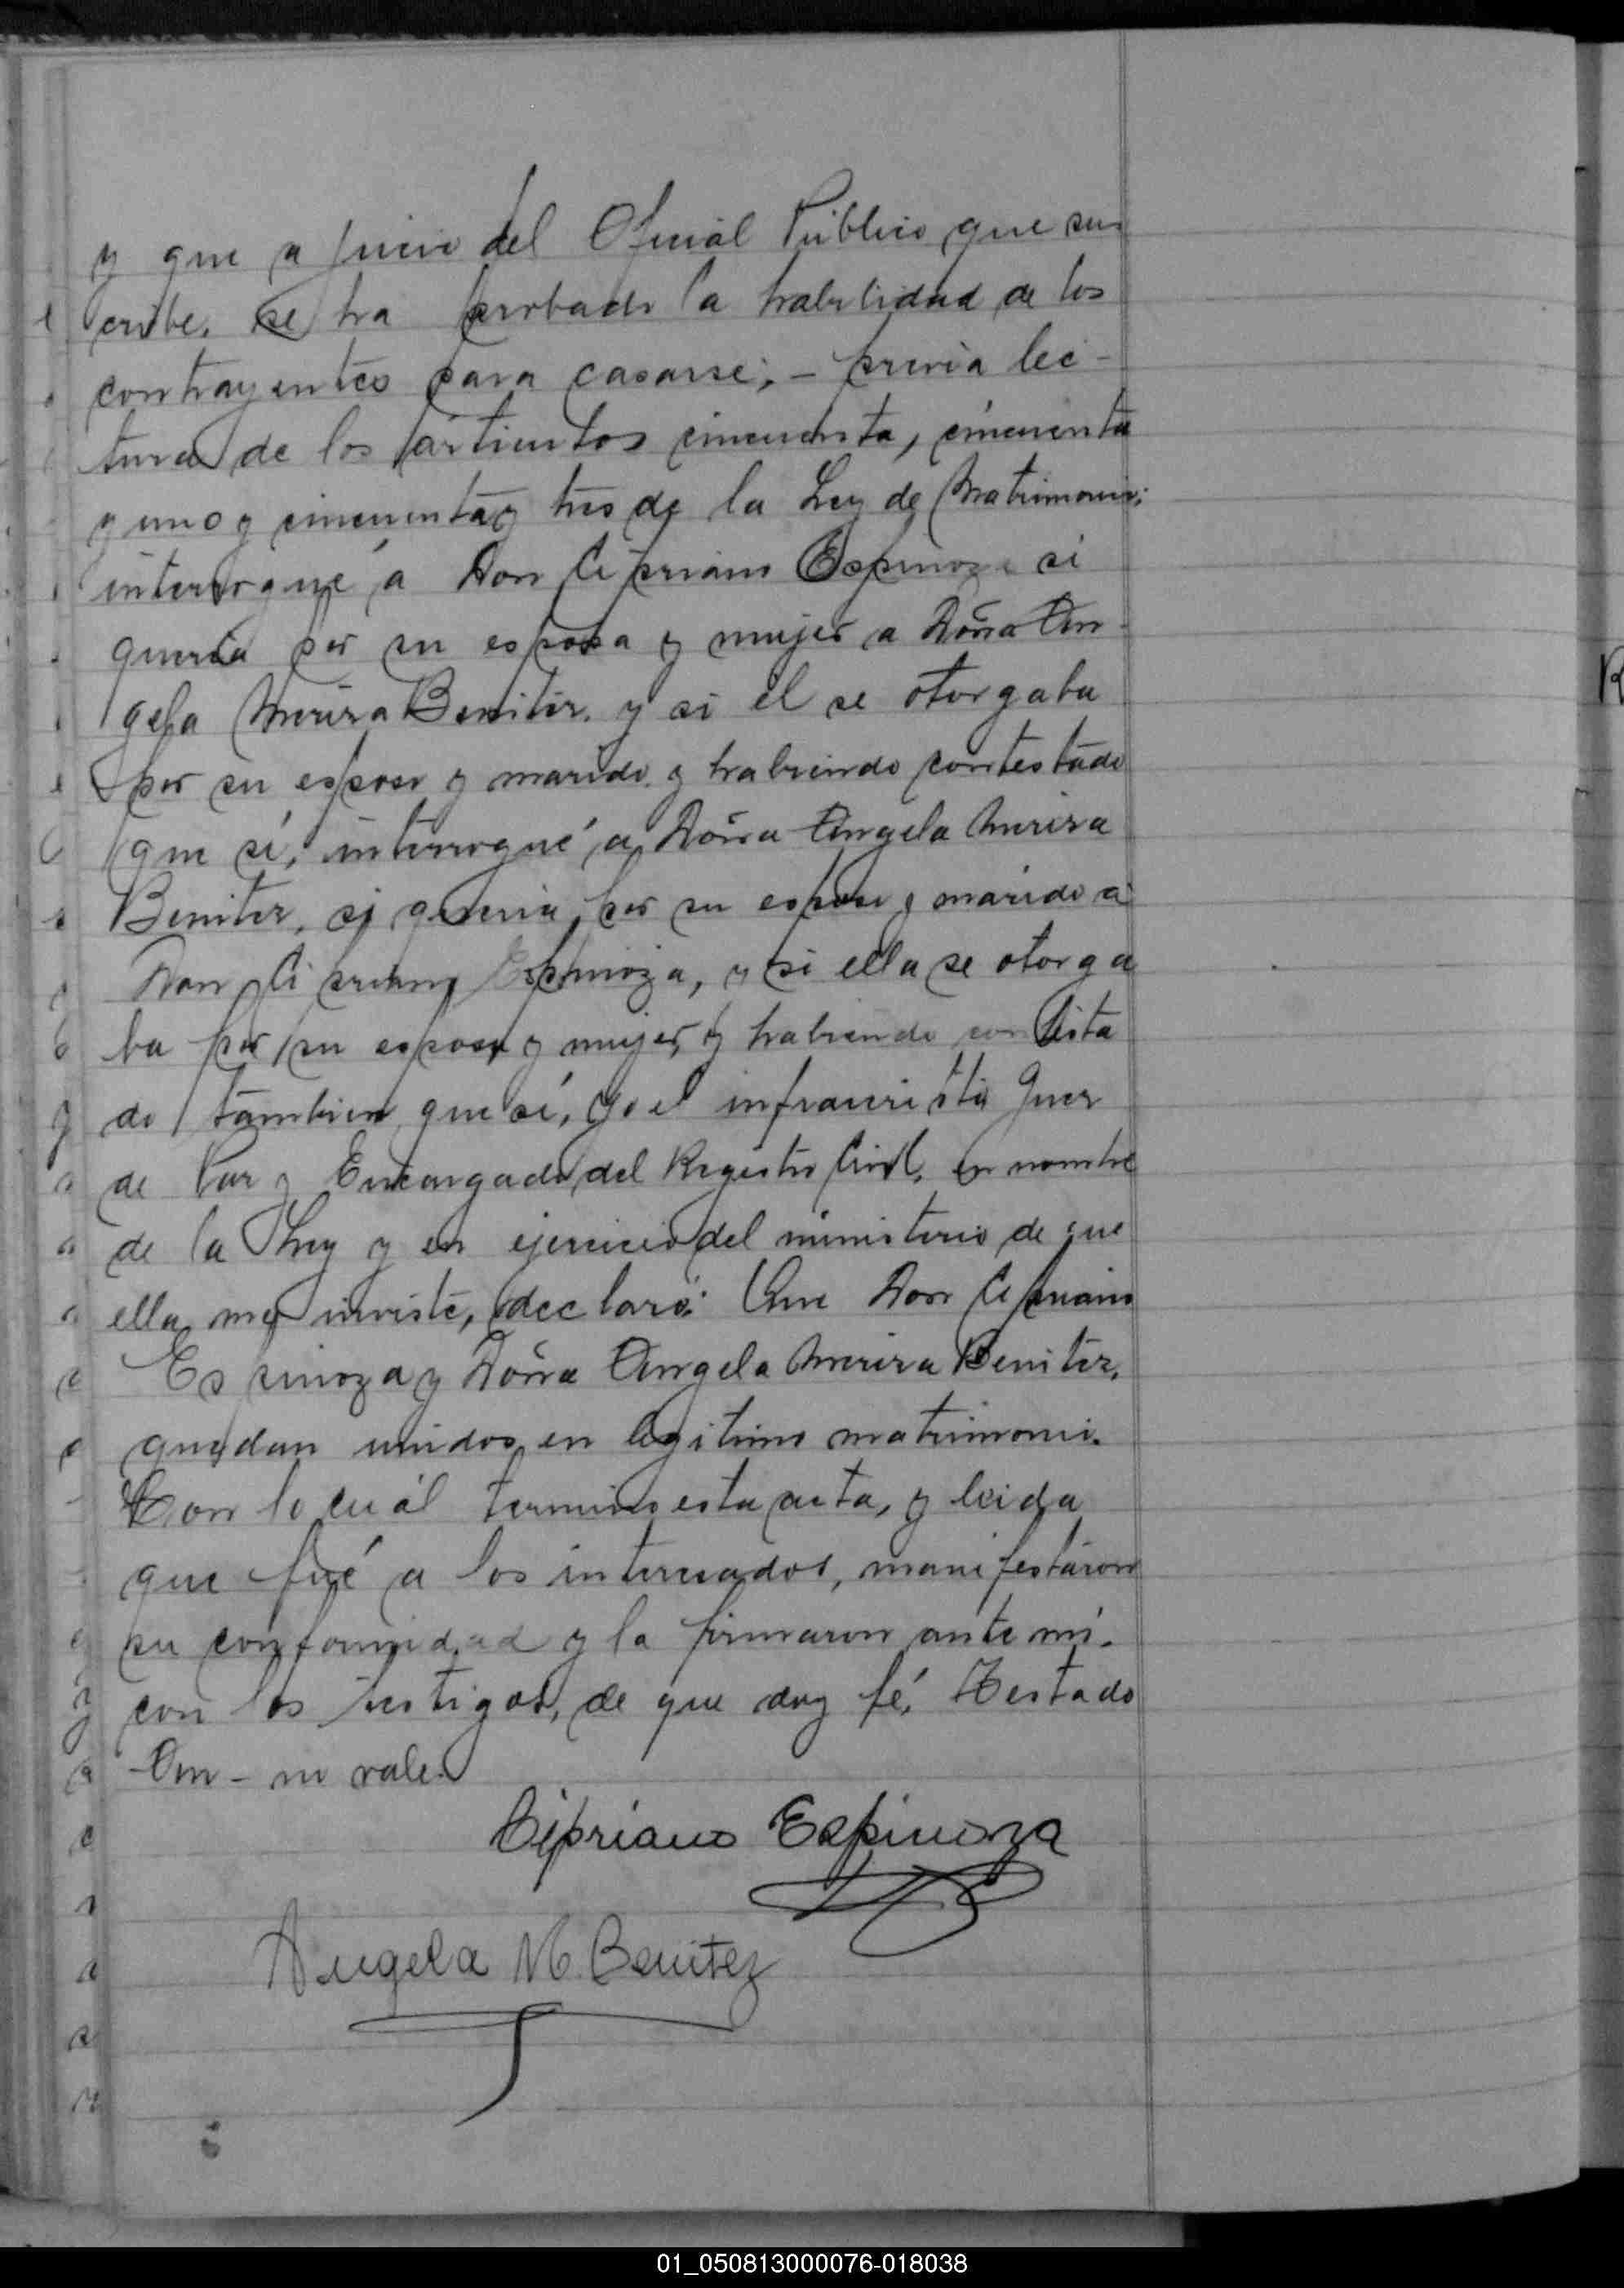 y que a juicio del Oficial Público que sus
cribe, se ha probado la habilidad de los
contrayentes para casarse; - previa lec-
tura de los artículos cincuenta, cincuenta
y uno y cincuenta y tres de la Ley de Matrimonio;
interrogué á Don Cipriano Espinoza si
queria por su esposa y mujer a Doña An-
gela Benitez, y si él se otorgaba
por su esposo y marido, y habiendo contestado
que sí, interrogué a Doña Angela
Benitez, si queria por su esposo y marido a
Don Cipriano Espinoza, y si ella se otorga
ba por su esposa y mujer, y habiendo contesta
do tambien que sí, yo el infrascrito Juez
de Paz y Encargado del Registro Civil, en nombre
de la Ley y en ejercicio del ministerio de que
ella me inviste, declaro: Que Don Cipriano
Espinoza y Doña Angela Benitez,
quedan unidos en legitimo matrimonio.
Con lo cuál termino esta acta, y leida
que fué a los interesados, manifestaron
su conformidad y la firmaron ante mí.
con los testigos, de que doy fé, Testado
- no vale.
Cipriano Espinoza
Angela M. Benitez
01_050813000076-018038